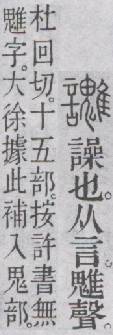 譟也。从言魋聲。
杜回切。十五部。按許書無
魋字。大徐據此補入鬼部。